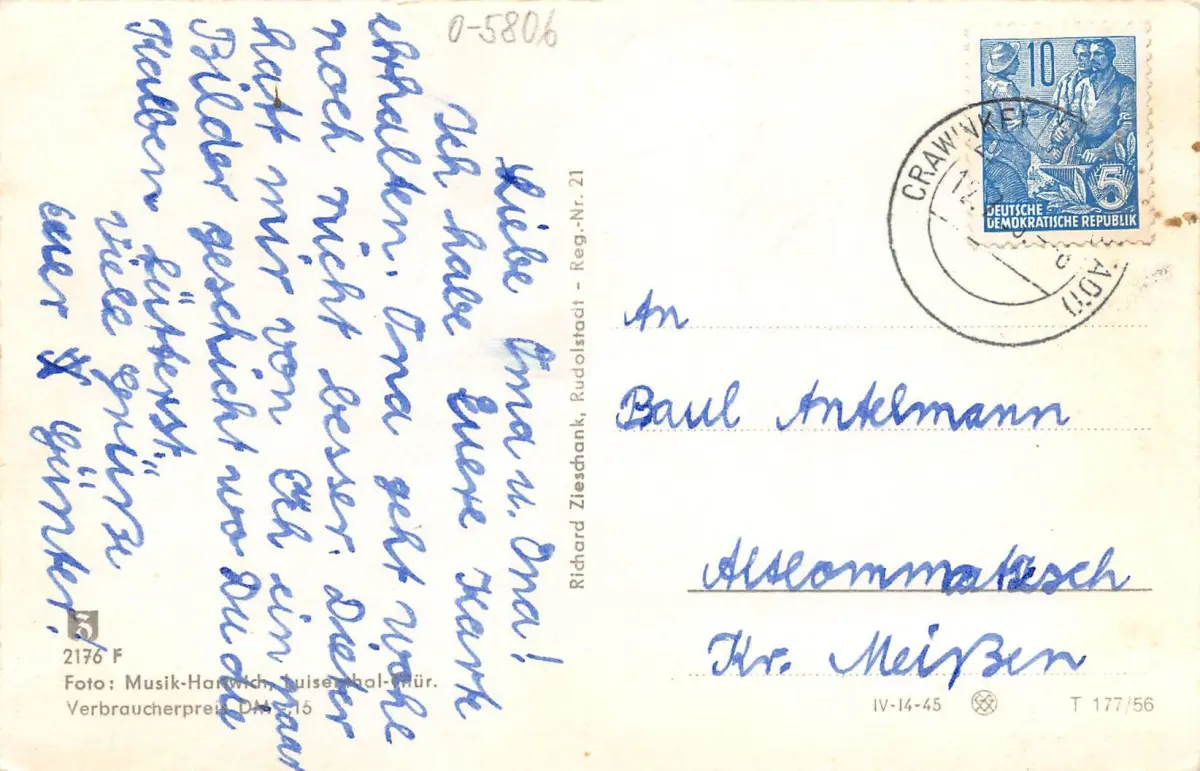 0-5806
Liebe Oma u. Ona!
Ich habe Euere Karte
ehthalten. Ona geht wohl
noch nicht besser. Dieter
hatt mir von Eh ein paar
Bilder geschicht wo Du die
Kalben fütterst.
Viele Grüße
euer
Günter!
Richard Zieschank, Rudolstadt – Reg.-Nr. 21
10
5
DEUTSCHE
DEMOKRATISCHE REPUBLIK
CRAWINKEL
An
Baul Antelmann
Altlommatzsch
Kr. Meißen
2176 F
Foto: Musik-Hartwich, Luisenthal-Thür.
Verbraucherpreis DM -.15
IV-14-45
T 177/56